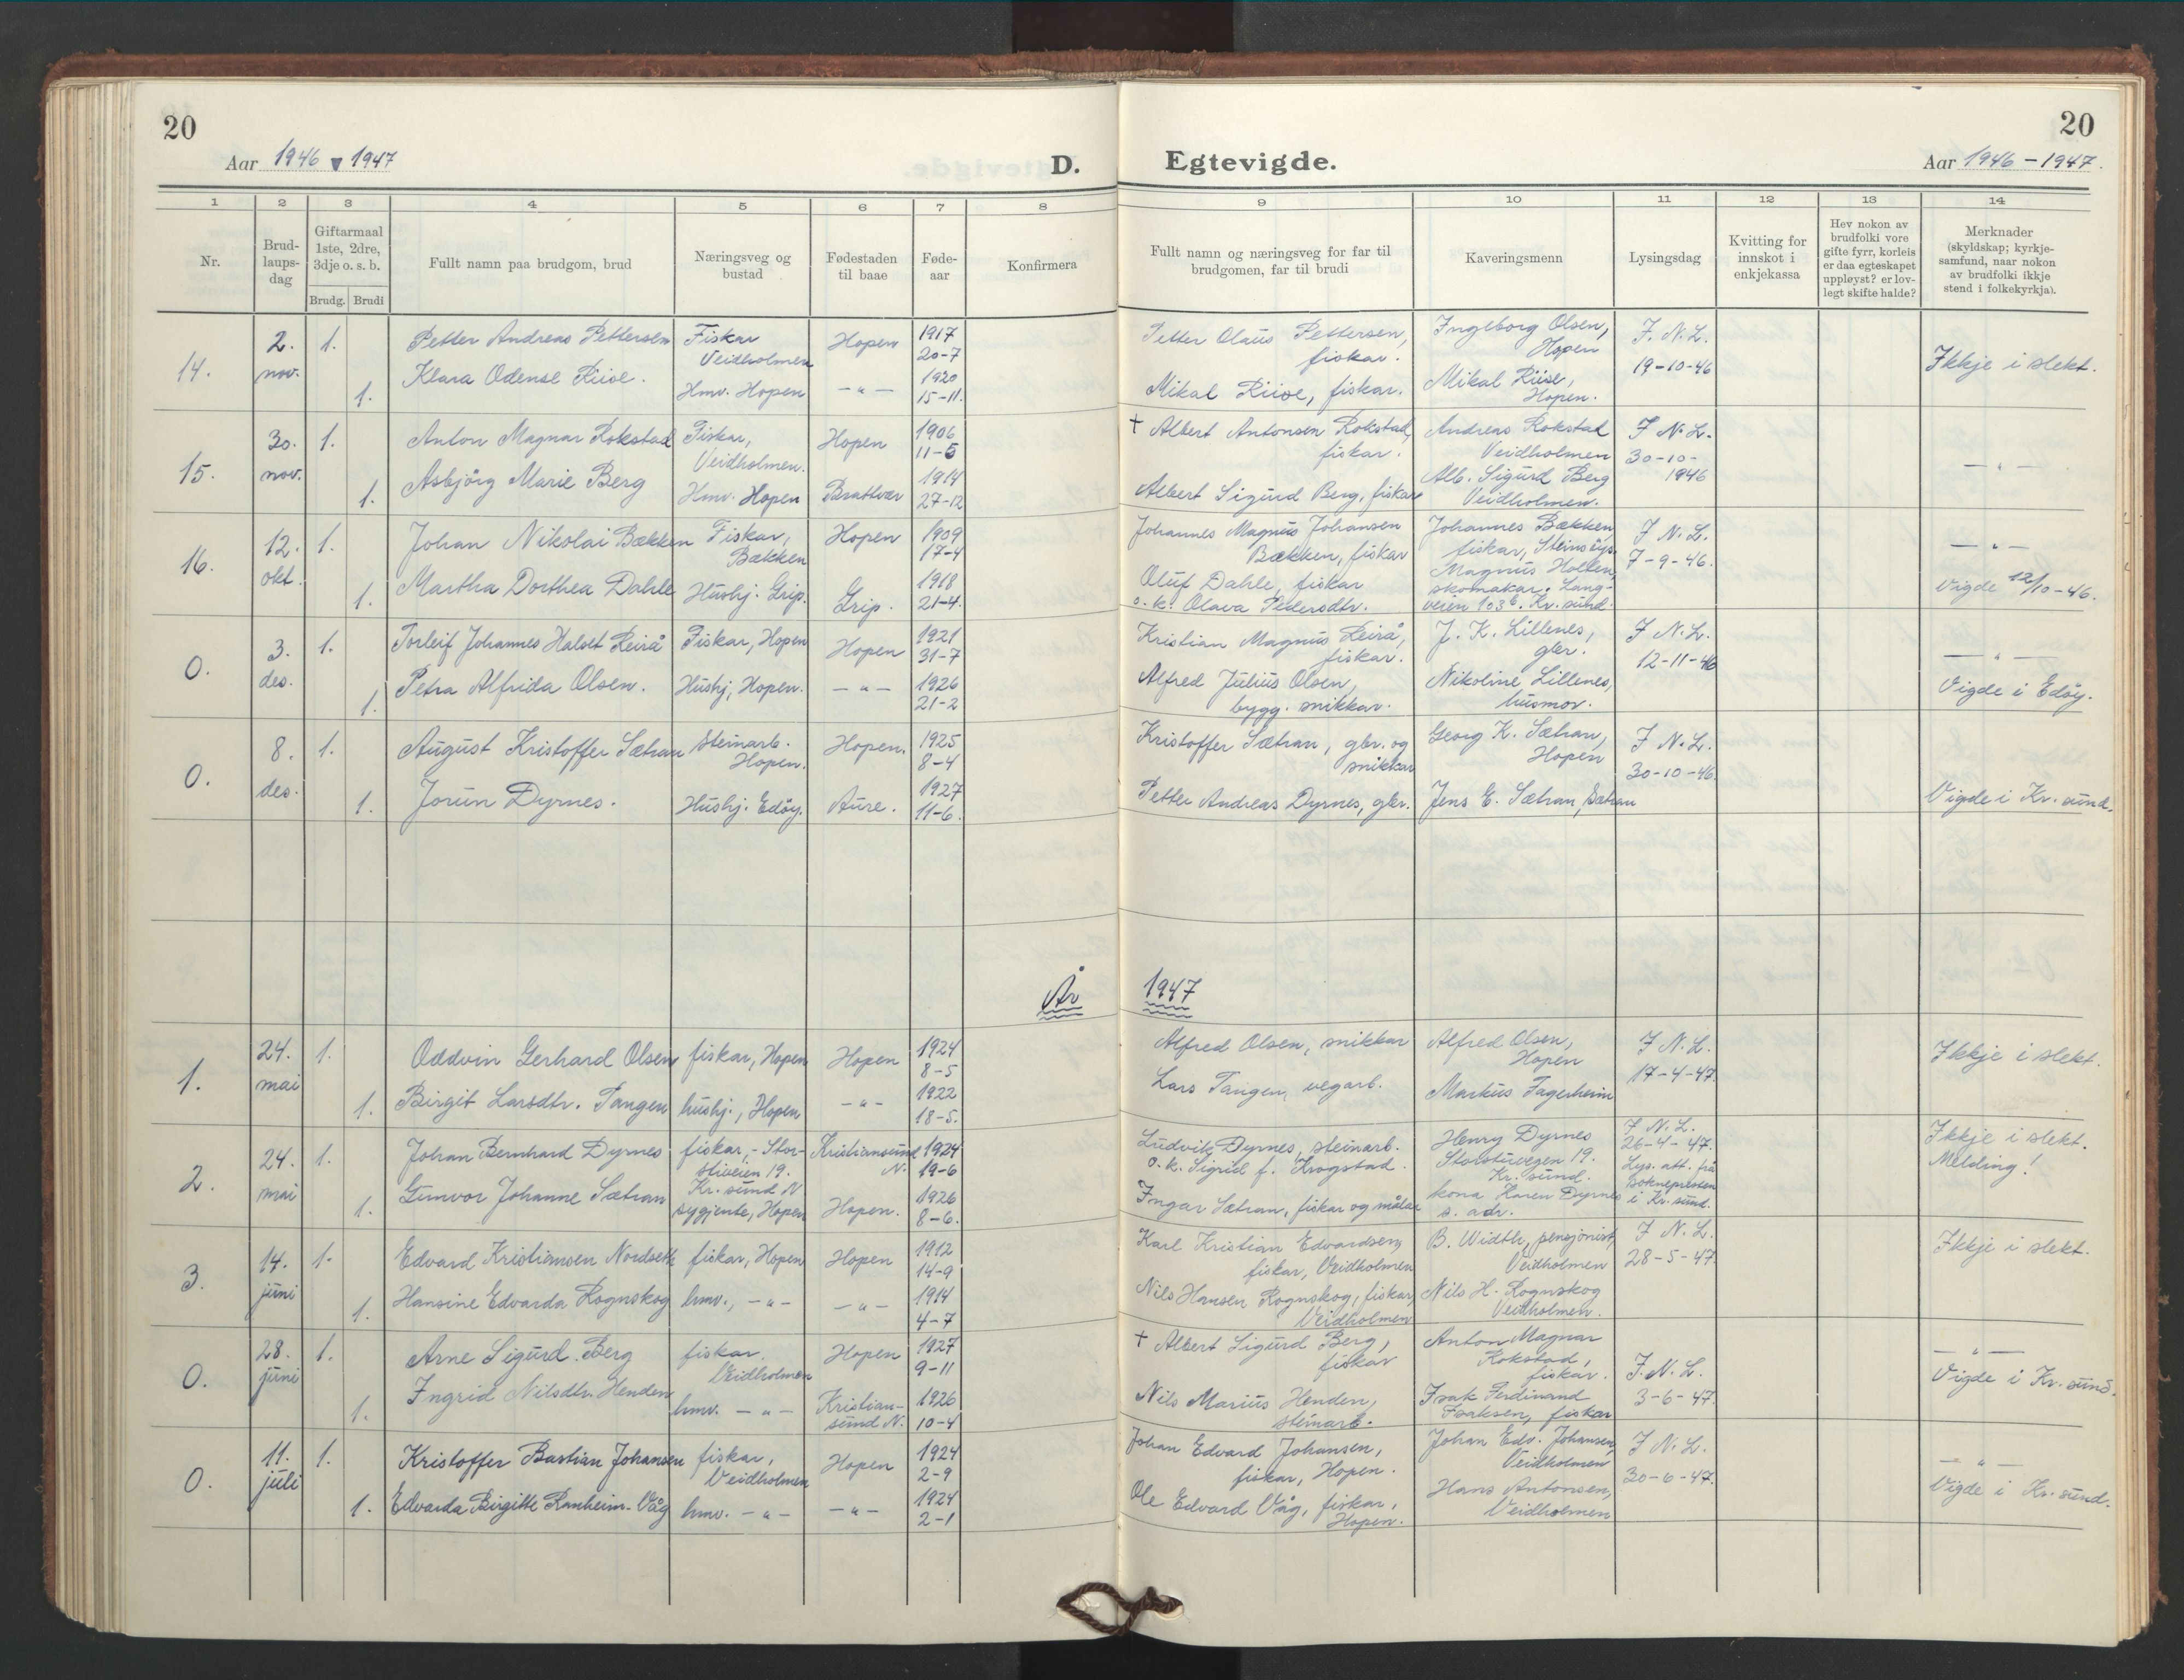 20
Aar 1946 1947
D. Egtevigde.
20
Aar 1946 - 1947.
1 2 3 4 5 6 7 8 9 10 11 12 13 14
Nr.
Brud-
laups-
dag
Giftarmaal
1ste, 2dre,
3dje o. s. b.
Brudg. Brudi
Fullt namn paa brudgom, brud
Næringsveg og
bustad
Fødestaden
til baae
Føde-
aar
Konfirmera
Fullt namn og næringsveg for far til
brudgomen, far til brudi
Kaveringsmenn
Lysingsdag
Kvitting for
innskot i
enkjekassa
Hev nokon av
brudfolki vore
gifte fyrr, korleis
er daa egteskapet
uppløyst? er lov-
legt skifte halde?
Merknader
(skyldskap; kyrkje-
samfund, naar nokon
av brudfolki ikkje
stend i folkekyrkja).
14.
2.
nov.
1.
Petter Andreas Pettersen
Fiskar
Veidholmen
Hopen
1917
20-7
Petter Olaus Pettersen,
fiskar.
Ingeborg Olsen,
Hopen
F. N. L.
19-10-46
Ikkje i slekt.
1.
Klara Odense Riise.
Hmv. Hopen
- " -
1920
15-11.
Mikal Riise, fiskar.
Mikal Riise,
Hopen.
15.
30.
nov.
1.
Anton Magnar Rokstad
Fiskar,
Veidholmen.
Hopen
1906
11-5
† Albert Antonsen Rokstad,
fiskar.
Andreas Rokstad
Veidholmen
F. N. L.
30-10-
1946
- " -
1.
Asbjörg Marie Berg
Hmv. Hopen
Brattvær
1914
27-12
Albert Sigurd Berg, fiskar
Alb. Sigurd Berg
Veidholmen.
16.
12.
okt.
1.
Johan Nikolai Bækken
Fiskar,
Bækken
Hopen
1909
17-4
Johannes Magnus Johansen
Bækken, fiskar
Johannes Bækken,
fiskar, Steinsöys.
F. N. L.
7-9-46.
- " -
Vigde 12/10-46.
1.
Martha Dorthea Dahle
Hushj. Grip.
Grip.
1918
21-4.
Oluf Dahle, fiskar
o. k. Olava Pedersdtr.
Magnus Holten,
skomakar. Lang-
veien 103b. Kr. sund.
0.
3.
des.
1.
Torleif Johannes Halset Reirå
Fiskar, Hopen
Hopen
1921
31-7
Kristian Magnus Reirå,
fiskar.
J. K. Lillenes,
gbr.
F. N. L.
12-11-46
- " -
Vigde i Edöy.
1.
Petra Alfrida Olsen.
Hushj, Hopen.
- " -
1926
21-2
Alfred Julius Olsen,
bygg. snikkar.
Nikoline Lillenes,
husmor.
0.
8.
des.
1.
August Kristoffer Sætran
Steinarb.
Hopen.
Hopen.
1925
8-4
Kristoffer Sætran, gbr. og
snikkar
Georg K. Sætran,
Hopen
F. N. L.
30-10-46.
Vigde i Kr. sund.
1.
Jorun Dyrnes.
Hushj. Edöy.
Aure.
1927
11-6.
Petter Andreas Dyrnes, gbr.
Jens E. Sætran, Sætran
År 1947
1.
24.
mai
1.
Oddvin Gerhard Olsen
fiskar, Hopen
Hopen
1924
8-5
Alfred Olsen, snikkar
Alfred Olsen,
Hopen
F. N. L.
17-4-47.
Ikkje i slekt.
1.
Birgit Larsdtr. Tangen
hushj., Hopen
- " -
1922
18-5.
Lars Tangen, vegarb.
Markus Fagerheim
2.
24.
mai
1.
Johan Bernhard Dyrnes
fiskar, - Stor-
stuveien 19.
Kr. sund N
Kristiansund
N.
1924
19-6
Ludvik Dyrnes, steinarb.
o. k. Sigrid f. Krogstad.
Henry Dyrnes
Storstuvegen 19.
Kr. sund.
F. N. L.
26-4-47.
Lys. att. frå
Soknepresten
i Kr. sund.
Ikkje i slekt.
Melding!
1.
Gunvor Johanne Sætran
sygjente, Hopen
Hopen.
1926
8-6.
Ingar Sætran, fiskar og målar
kona Karen Dyrnes
s. adr.
3.
14.
juni
1.
Edvard Kristiansen Nordseth
fiskar, Hopen
Hopen
1912
14-9
Karl Kristian Edvardsen,
fiskar, Veidholmen
B. Width, pensjonist,
Veidholmen
F. N. L.
28-5-47.
Ikkje i slekt.
1.
Hansine Edvarda Rognskog
hmv., - " -
- " -
1914
4-7
Nils Hansen Rognskog, fiskar,
Veidholmen
Nils H. Rognskog
Veidholmen.
0.
28.
juni
1.
Arne Sigurd Berg
fiskar,
Veidholmen
Hopen
1927
9-11
† Albert Sigurd Berg,
fiskar
Anton Magnar
Rokstad,
fiskar.
F. N. L.
3-6-47.
- " -
Vigde i Kr. sund.
1.
Ingrid Nilsdtr. Henden
hmv. - " -
Kristian-
sund N.
1926
10-4
Nils Marius Henden,
steinarb.
Isak Ferdinand
Isaksen, fiskar
0.
11.
juli
1.
Kristoffer Bastian Johansen
fiskar,
Veidholmen
Hopen
1924
2-9
Johan Edvard Johansen,
fiskar, Hopen.
Johan Edv. Johansen,
Veidholmen
F. N. L.
30-6-47.
- " -
Vigde i Kr. sund.
1.
Edvarda Birgitte Ranheim-Våg
hmv. - " -
- " -
1924
2-1
Ole Edvard Våg, fiskar,
Hopen.
Hans Antonsen,
Veidholmen